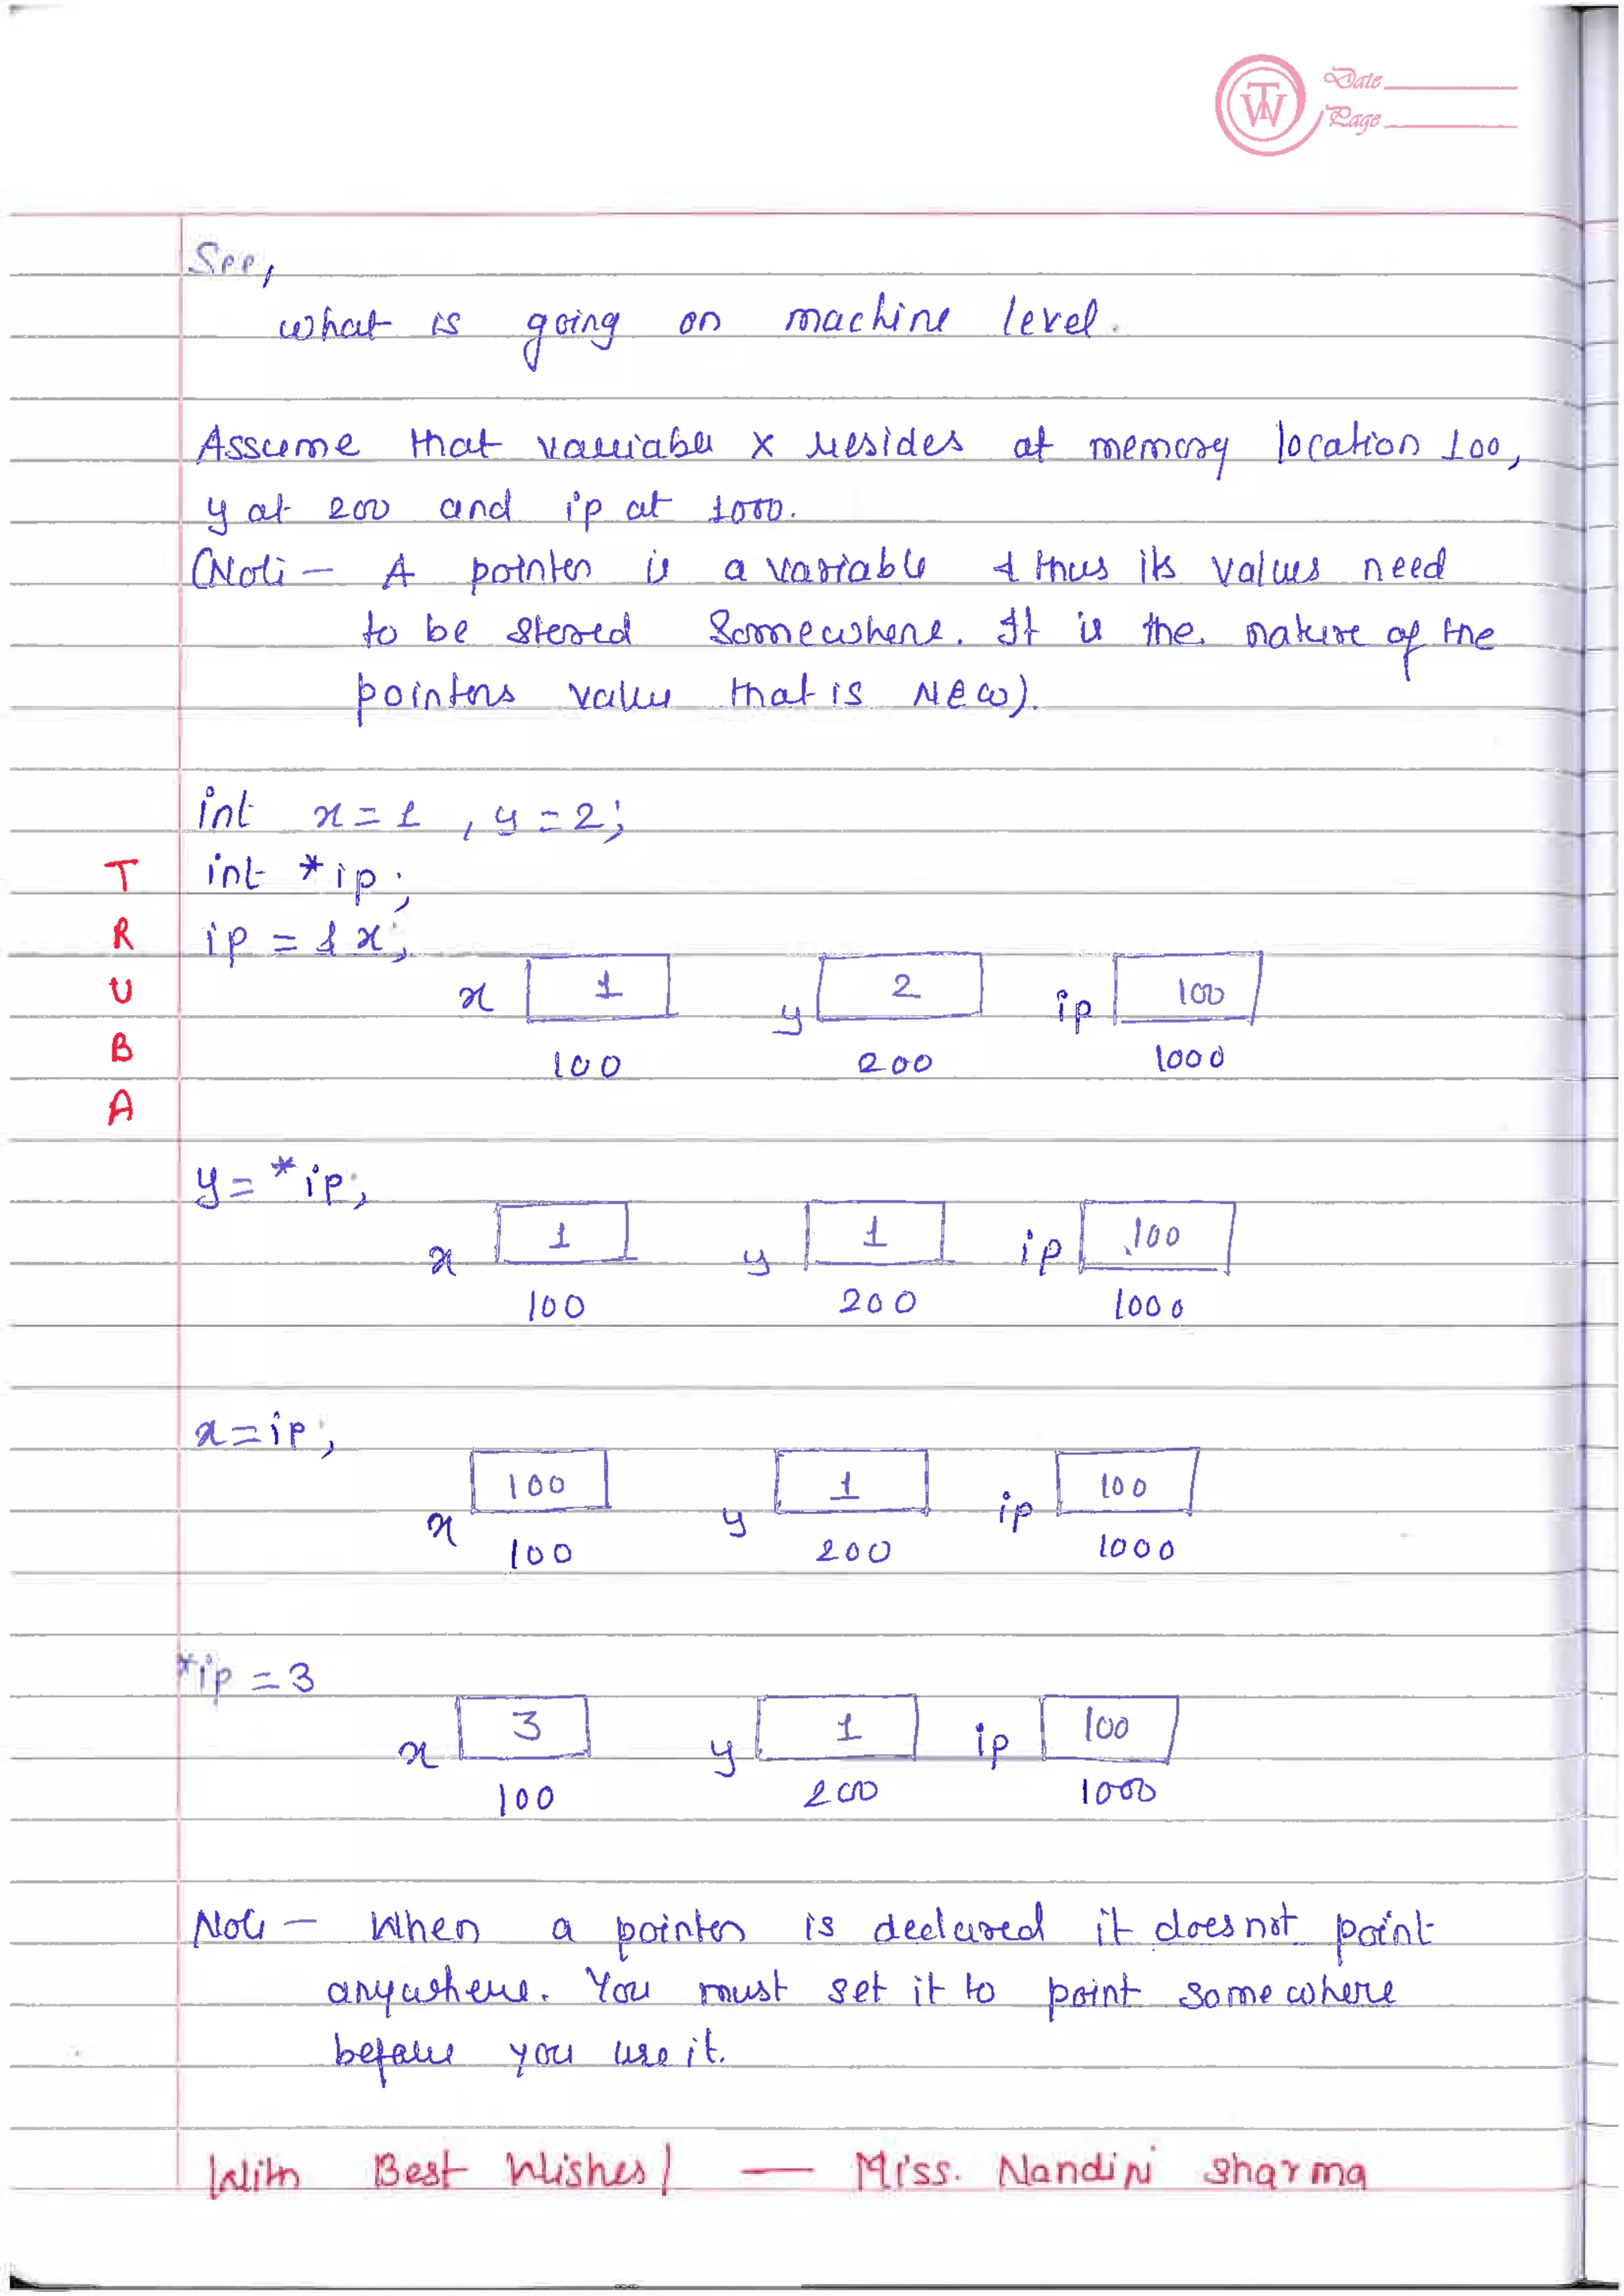 TW Date
Page
See,
what is going on machine level.
Assume that variable x resides at memory location 100,
y at 200 and ip at 1000.
(Note - A pointer is a variable & thus its values need
to be stored somewhere. It is the nature of the
pointers value that is new).
int x = 1 , y = 2;
int *ip;
ip = &x;
x 1 y 2 ip 100
100 200 1000
y = *ip;
x 1 y 1 ip 100
100 200 1000
x = ip;
x 100 y 1 ip 100
100 200 1000
*ip = 3
x 3 y 1 ip 100
100 200 1000
Note - When a pointer is declared it does not point
anywhere. You must set it to point somewhere
before you use it.
With Best Wishes! - Miss. Nandini Sharma
T
R
U
B
A